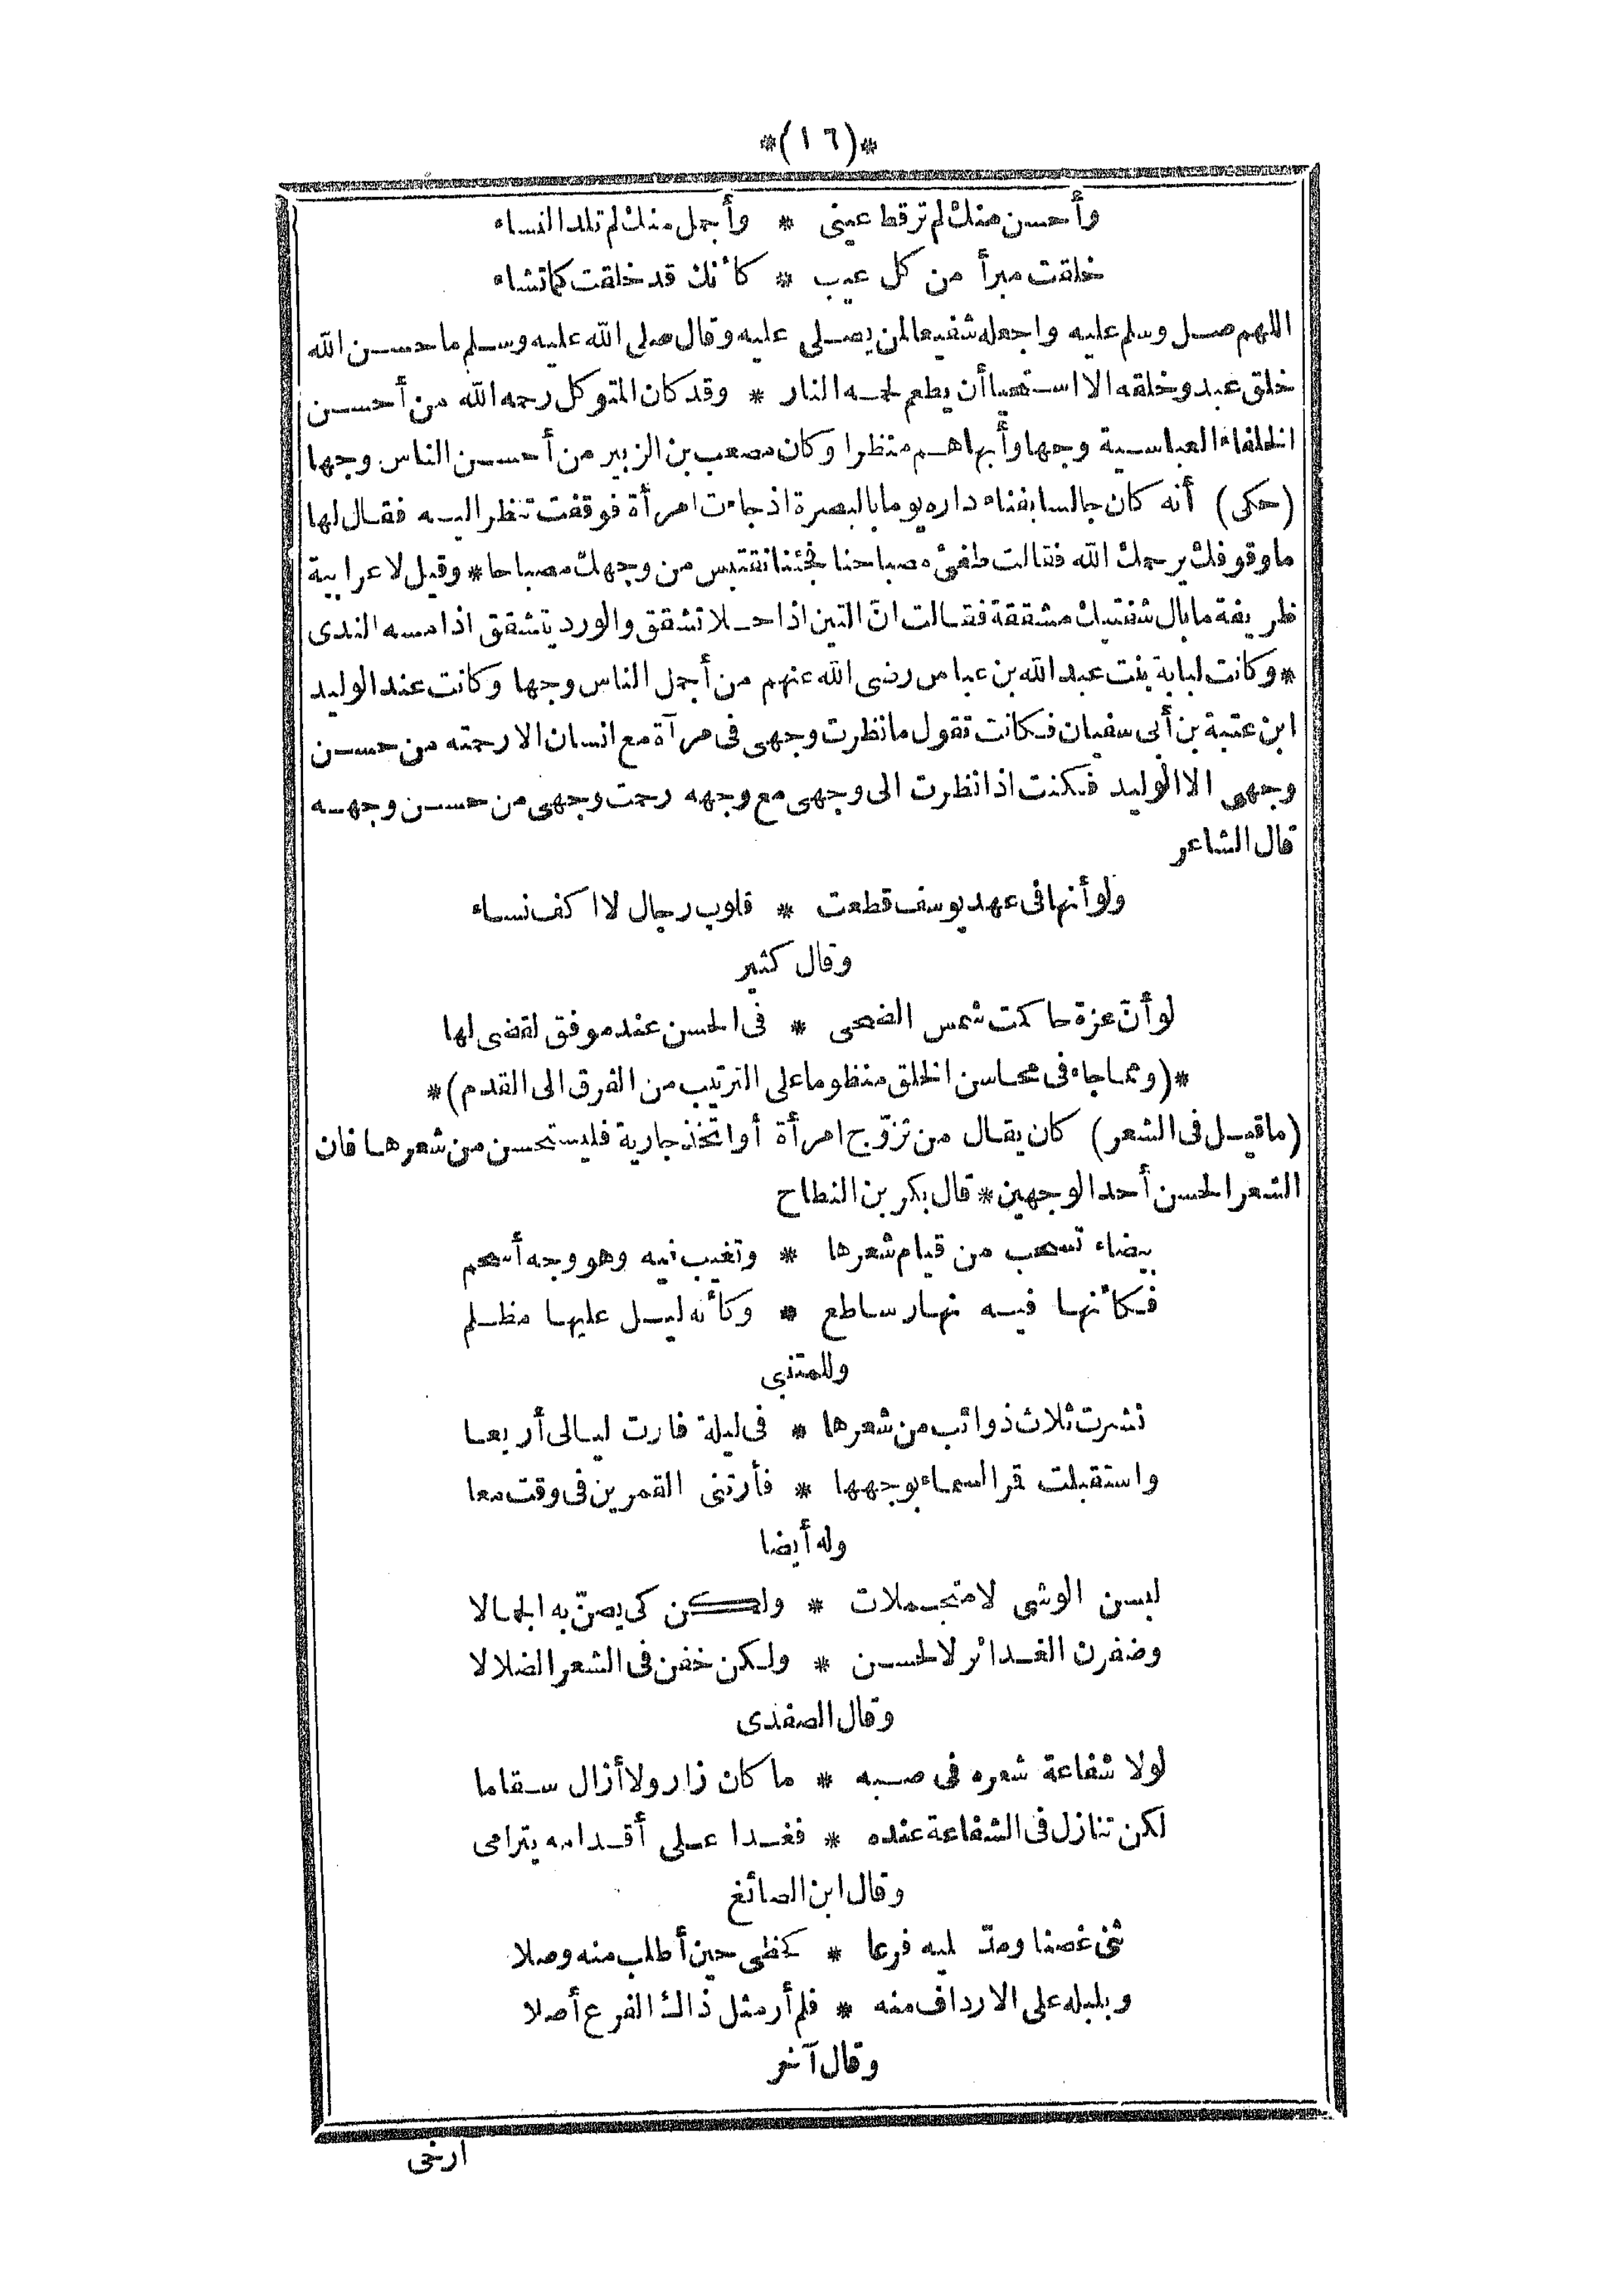 *(١٦)*
وأحسن منك لم تر قط عيني * وأجمل منك لم تلد النساء
خلقت مبرأ من كل عيب * كأنك قد خلقت كما تشاء
اللهم صل وسلم عليه واجعله شفيعا لمن يصلى عليه وقال صلى الله عليه وسلم ما حسن الله
خلق عبد وخلقه الا استحيا أن يطعم لحمه النار * وقد كان المتوكل رحمه الله من أحسن
الخلفاء العباسية وجها وأبهاهم منظرا وكان مصعب بن الزبير من أحسن الناس وجها
(حكى) أنه كان جالسا بفناء داره يوما بالبصرة اذ جاءت امرأة فوقفت تنظر اليه فقال لها
ما وقوفك يرحمك الله فقالت طفئ مصباحنا فجئنا نقتبس من وجهك مصباحا * وقيل لاعرابية
ظريفة ما بال شفتيك مشققة فقالت انّ التين اذا حلا تشقق والورد يتشقق اذا مسه الندى
* وكانت لبابة بنت عبد الله بن عباس رضى الله عنهم من أجمل الناس وجها وكانت عند الوليد
ابن عتبة بن أبى سفيان فكانت تقول ما نظرت وجهى فى مرآة مع انسان الا رحمته من حسن
وجهى الا الوليد فكنت اذا نظرت الى وجهى مع وجهه رحمت وجهى من حسن وجهه
قال الشاعر
ولو أنها فى عهد يوسف قطعت * قلوب رجال لا اكف نساء
وقال كثير
لو أنّ عزة حاكمت شمس الضحى * فى الحسن عند موفق لقضى لها
*(ومما جاء فى محاسن الخلق منظوما على الترتيب من الفرق الى القدم)*
(ما قيل فى الشعر) كان يقال من تزوّج امرأة أو اتخذ جارية فليستحسن من شعرها فان
الشعر الحسن أحد الوجهين * قال بكر بن النطاح
بيضاء تسحب من قيام شعرها * وتغيب فيه وهو وجه أسحم
فكأنها فيه نهار ساطع * وكأنه ليل عليها مظلم
وللمتنبى
نشرت ثلاث ذوائب من شعرها * فى ليلة فارت ليالى أربعا
واستقبلت قمر السماء بوجهها * فأرتنى القمرين فى وقت معا
وله أيضا
لبسن الوشى لا متجملات * ولكن كى يصنّ به الجمالا
وضفرن الغدائر لا لحسن * ولكن خفن فى الشعر الضلالا
وقال الصفدى
لولا شفاعة شعره فى صبه * ما كان زار ولا أزال سقاما
لكن تنازل فى الشفاعة عنده * فغدا على أقدامه يترامى
وقال ابن الصائغ
ثنى غصنا ومدّ ليه فرعا * كحظى حين أطلب منه وصلا
وبلبله على الارداف منه * فلم أر مثل ذاك الفرع أصلا
وقال آخر
ارخى